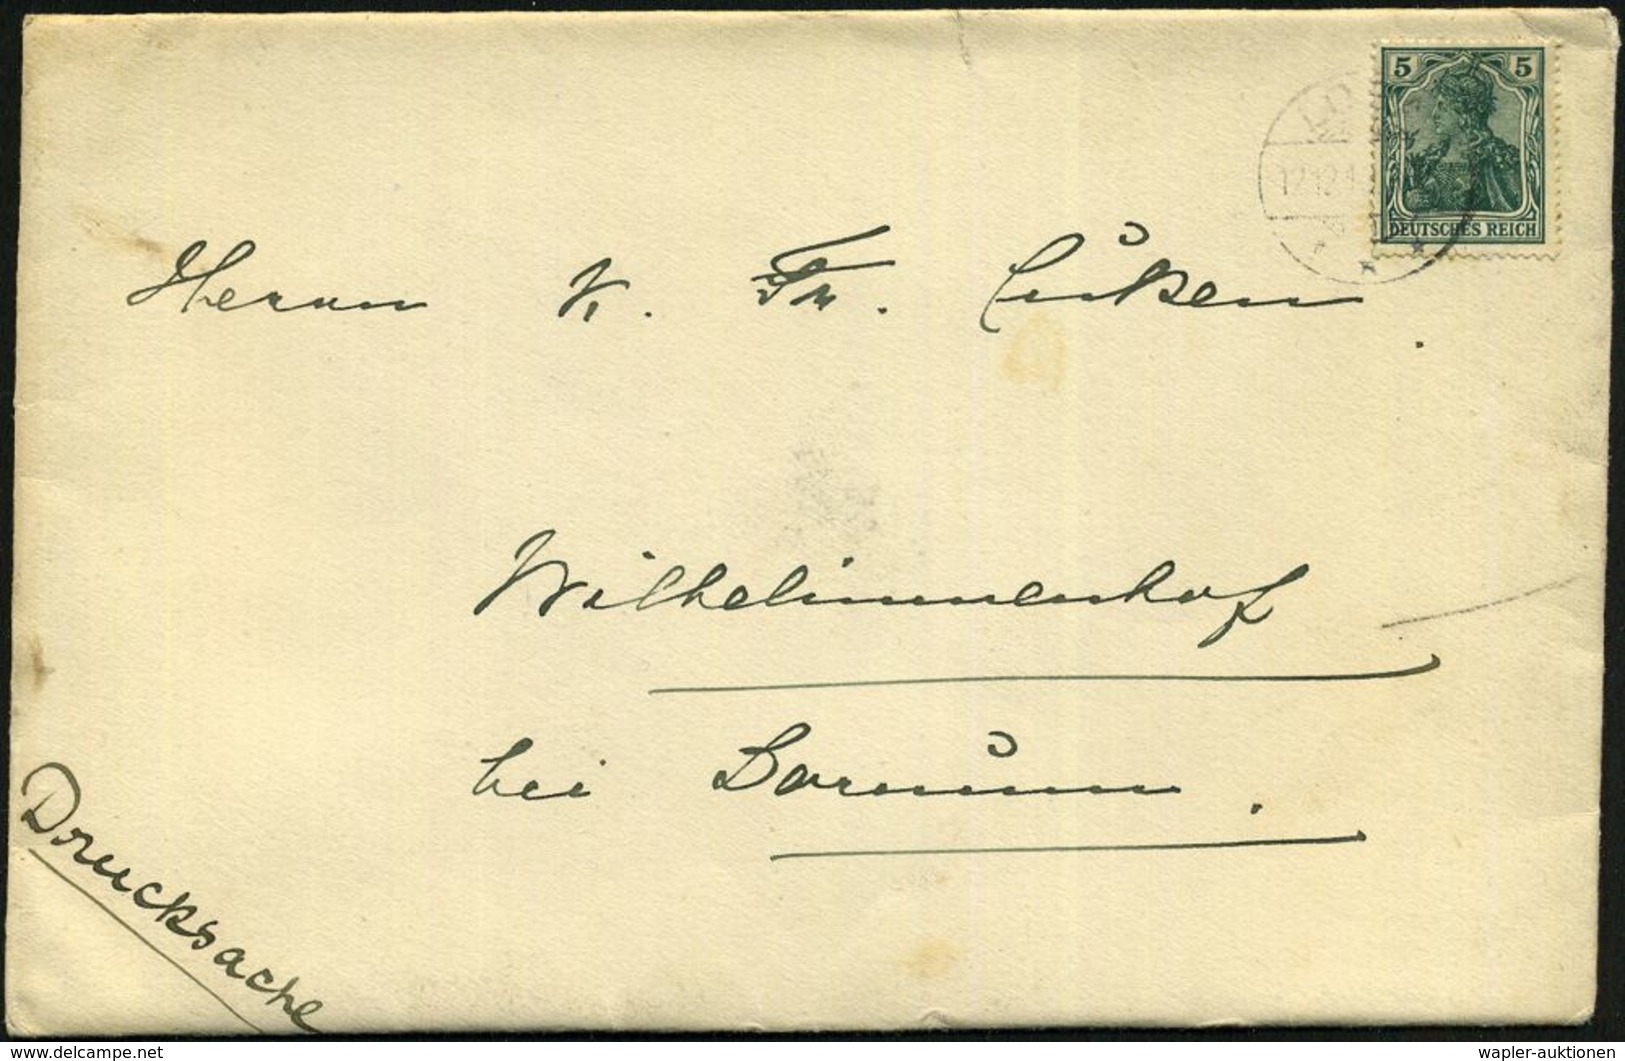 5 5
DEUTSCHES REICH
12.12.1
Herrn K. Fr. Lüken.
Wilhelminenhof
bei Bornum.
Drucksache
delcampe.net
wapler-auktionen